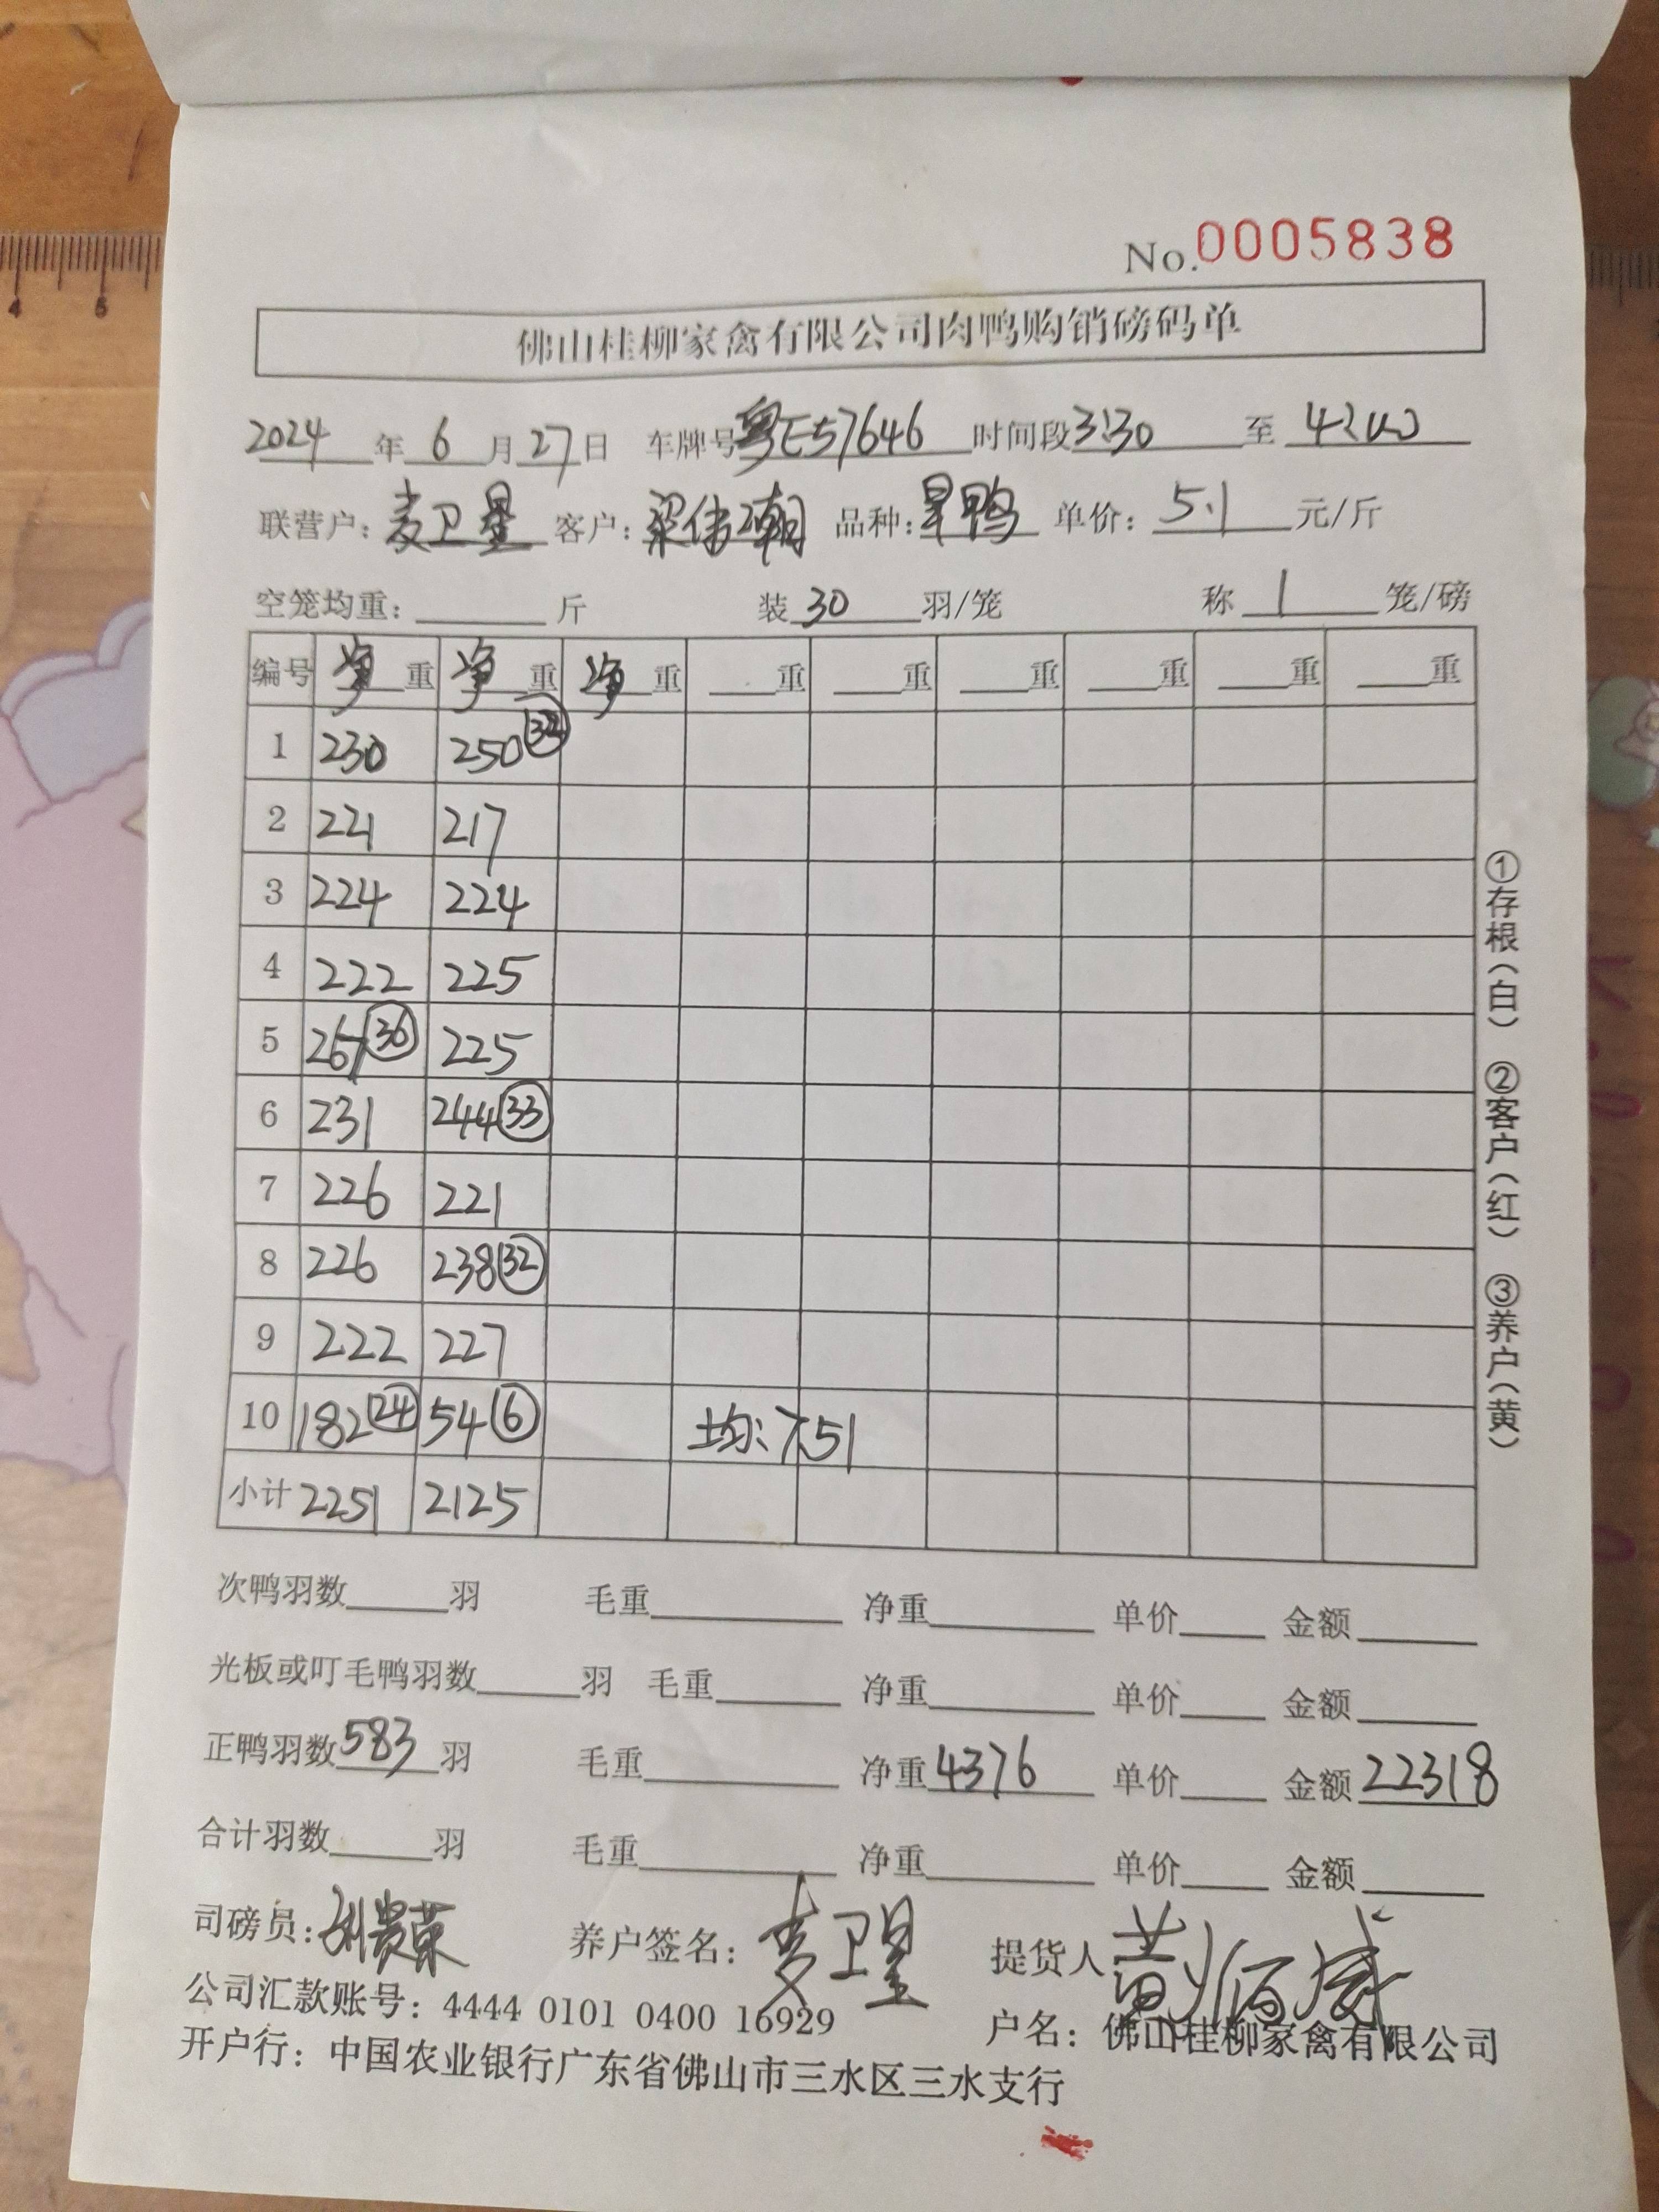 No.0005838
佛山桂柳家禽有限公司肉鸭购销磅码单
2024年6月27日 车牌号粤E57646 时间段3:30至4:00
联营户:麦卫星 客户:梁伟潮 品种:旱鸭 单价:5.1元/斤
空笼均重:____斤 装30羽/笼 称1笼/磅
编号 净重 净重 净重 __重 __重 __重 __重 __重 __重
1 230 250 (32)
2 221 217
3 224 224
4 222 225
5 267 (36) 225
6 231 244 (33)
7 226 221
8 226 238 (32)
9 222 227
10 182 (24) 54 (6) 均:7.51
小计 2251 2125
①存根(白) ②客户(红) ③养户(黄)
次鸭羽数____羽 毛重____ 净重____ 单价____ 金额____
光板或叮毛鸭羽数____羽 毛重____ 净重____ 单价____ 金额____
正鸭羽数583羽 毛重____ 净重4376 单价____ 金额22318
合计羽数____羽 毛重____ 净重____ 单价____ 金额____
司磅员:刘贵荣 养户签名:麦卫星 提货人
公司汇款账号:4444 0101 0400 16929 户名:佛山桂柳家禽有限公司
开户行:中国农业银行广东省佛山市三水区三水支行